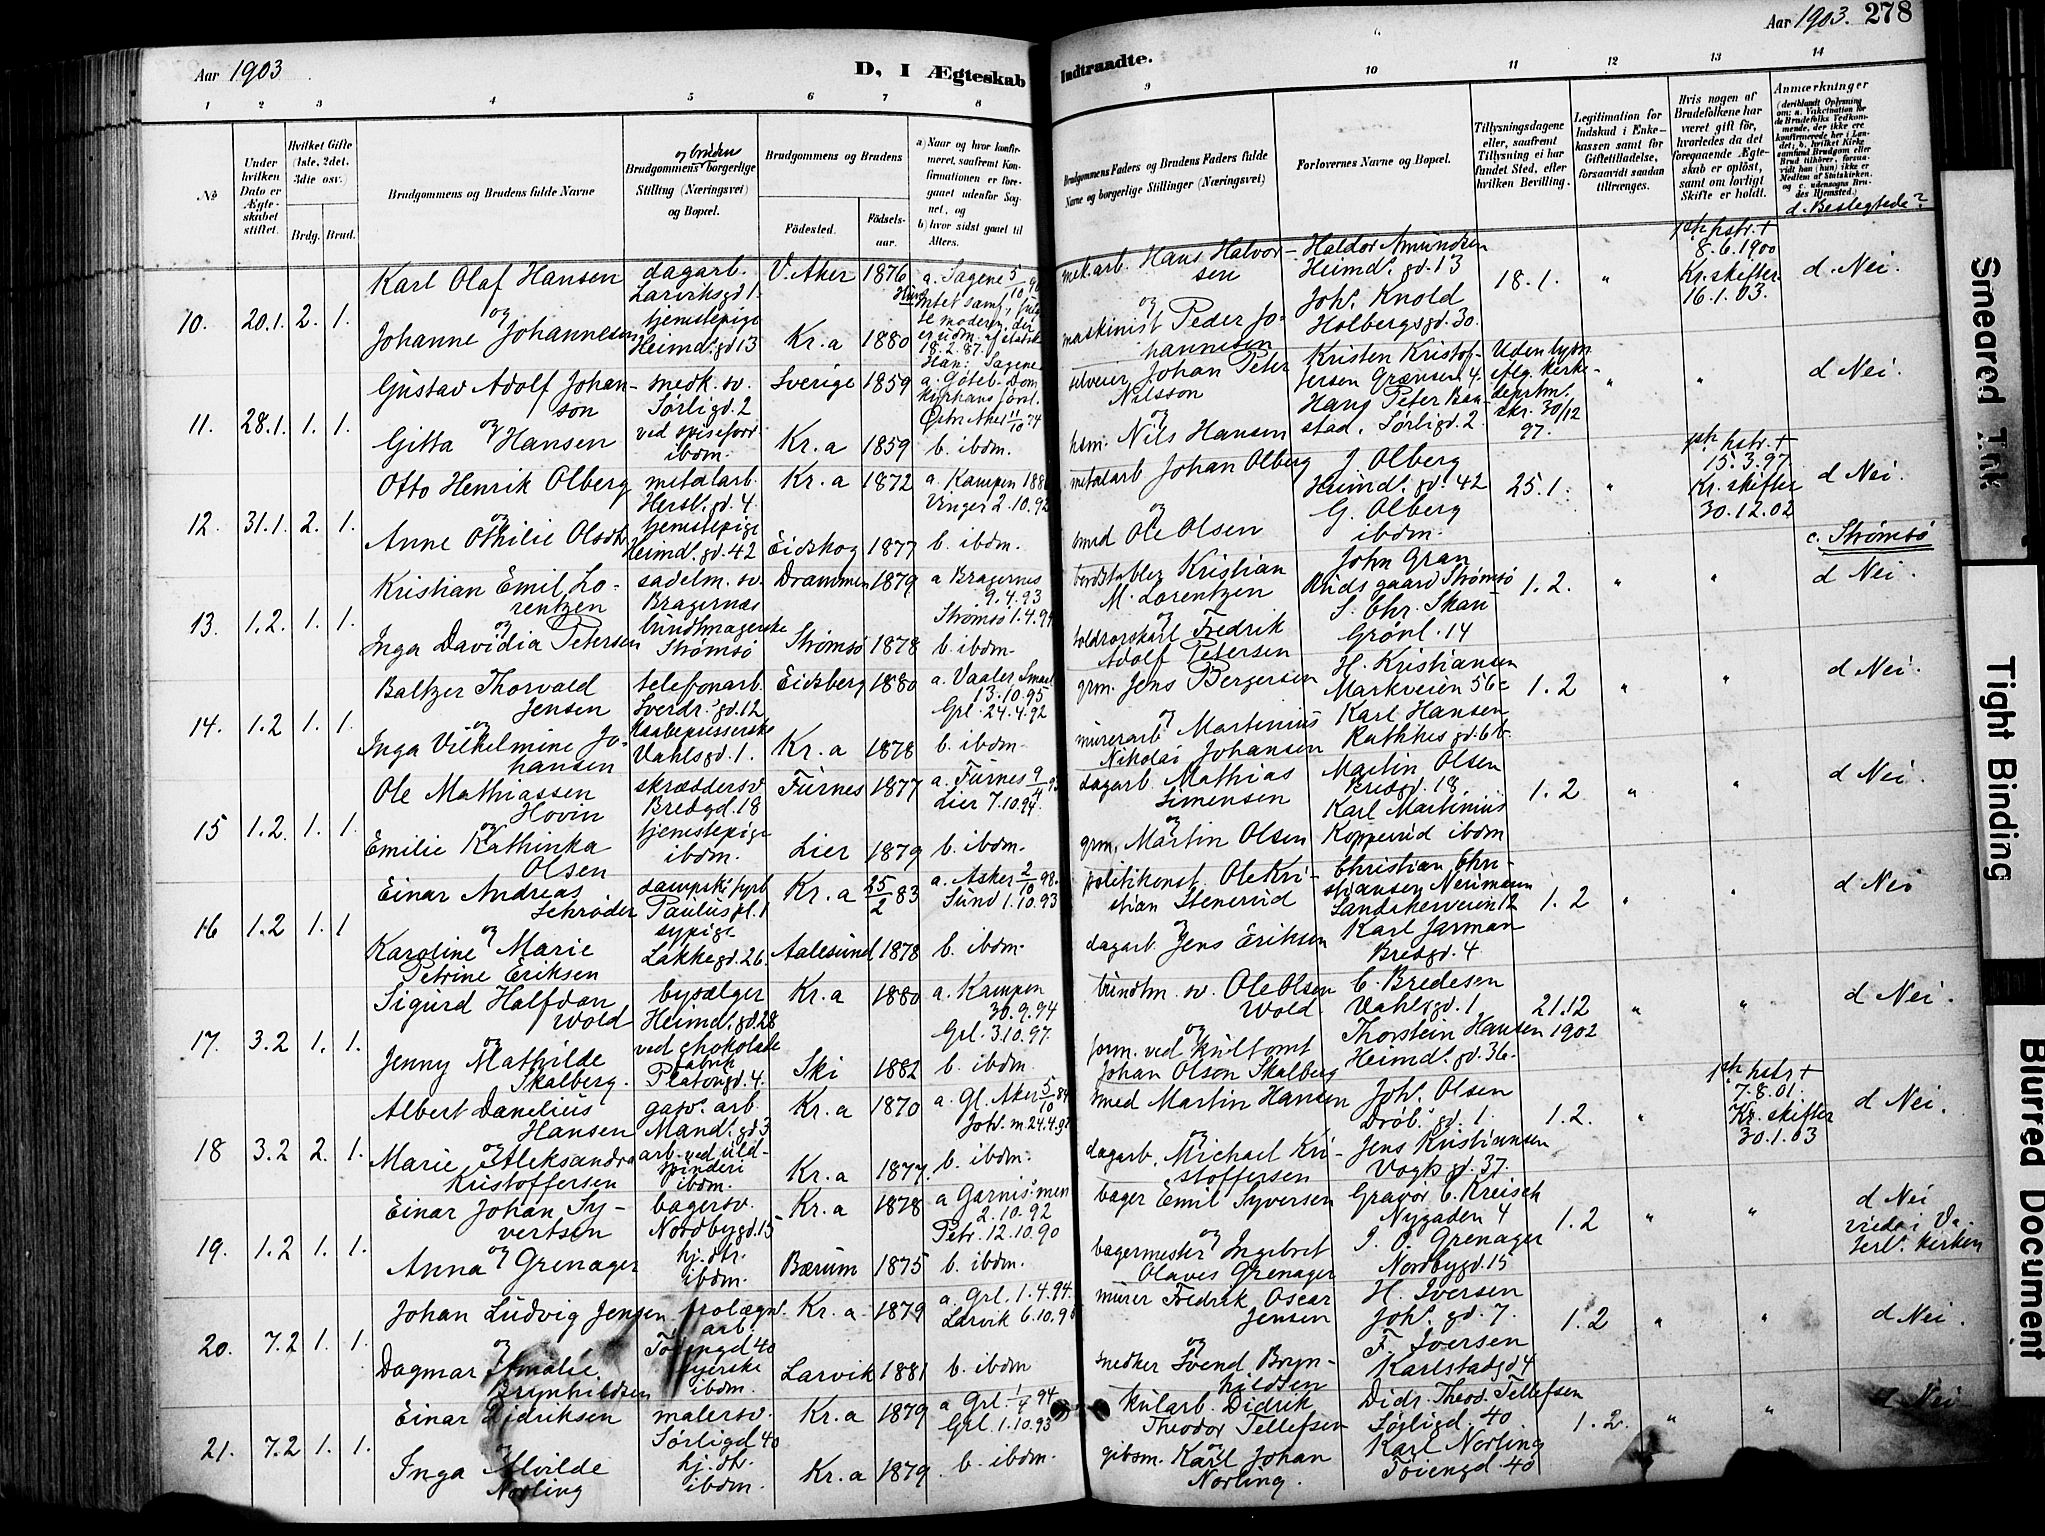 Aar 1903
D, I Ægteskab Indtraadte.
Aar 1903. 278
1 2 3 4 5 6 7 8 9 10 11 12 13 14
No
Under hvilken Dato er Ægteskabet stiftet.
Hvilket Gifte (1ste, 2det, 3die osv.)
Brdg. Brud.
Brudgommens og Brudens fulde Navne
og brudens
Brudgommens borgerlige Stilling (Næringsvei) og Bopæl.
Brudgommens og Brudens
Fødested.
Fødsels-aar.
a) Naar og hvor konfirmeret, saafremt Konfirmationen er foregaaet udenfor Sognet, og
b) hvor sidst gaaet til Alters.
Brudgommens Faders og Brudens Faders fulde Navne og borgerlige Stillinger (Næringsvei)
Forlovernes Navne og Bopæl.
Tillysningsdagene eller, saafremt Tillysning ei har fundet Sted, efter hvilken Bevilling.
Legitimation for Indskud i Enkekassen samt for Giftetilladelse, forsaavidt saadan tiltrænges.
Hvis nogen af Brudefolkene har været gift før, hvorledes da det foregaaende Ægteskab er opløst, samt om lovligt Skifte er holdt.
Anmærkninger
(deriblandt Oplysning om: a. Vakcination for de Brudefolks Vedkommende, der ikke ere konfirmerede her i Landet; b. hvilket Kirkesamfund Brudgom eller Brud tilhører, forsaavidt han (hun) ikke er Medlem af Statskirken, og c. udensogns Brudes Hjemsted.)
d. Beslegtede?
10. 20.1. 2. 1.
Karl Olaf Hansen
og
Johanne Johannesen
dagarb.
Larviksgd 1.
tjenestepige
Heimd. gd 13
V. Aker 1876
Kr.a 1880
a. Sagene 5/10
18.2.87.
Han: Sagene
mek.arb. Hans Halvor-
sen
og
maskinist Peder Jo-
hannesen
Haldor Amundsen
Heimd. gd. 13
Joh. Knold
Holbergsgd. 30.
18.1. "
hstr. +
8.6.1900
Kr. skifter.
16.1.03.
d. Nei.
11. 28.1. 1. 1.
Gustav Adolf Johan-
son
og
Gitta Hansen
snedk. sv.
Sørligd. 2
ved spiseforr.
ibdm.
Sverige 1859
Kr.a 1859
a. Göteb. Dom
b. ibdm.
Johan Peter
Nilsson
og
Nils Hansen
Kristen Kristof-
fersen Grænsen 4.
Hans Peter Baa-
stad, Sørligd. 2.
Uden lysn.
kirke-
deprtm.
skr. 30/12
97.
" "
d Nei.
12. 31.1. 2. 1.
Otto Henrik Olberg
og
Anne Othilie Olsdtr
metalarb.
Hersl. gd. 4.
tjenestepige
Heimd. gd. 42
Kr.a 1872
Eidskog 1877
a. Kampen
Vinger 2.10.92
b. ibdm.
metalarb Johan Olberg
og
smed Ole Olsen
J Olberg
Heimd. gd. 42
G. Olberg
ibdm.
25.1. "
hstr. +
15.3.97
Kr. skifter
30.12.02
d Nei.
13. 1.2. 1. 1.
Kristian Emil Lo-
rentzen
og
Inga Davidia Petersen
sadelm. sv.
Bragernæs
bundtmagerske
Strømsø
Drammen 1879
Strømsø 1878
a Bragernes
9.4.93
Strømsø 1.4.94
b. ibdm.
bordstabler Kristian
M. Lorentzen
og
Fredrik
Adolf Petersen
John Gran
Rudsgaard Strømsø
S. Chr. Skau-
Grønl. 14
1.2. " "
c. Strømsø
d Nei.
14. 1.2 1. 1.
Baltzer Thorvald
Jensen
og
Inga Vilhelmine Jo-
hansen
telefonarb.
Sverdr. gd. 12
Kaabepresserske
Vahlsgd. 1.
Eidsberg 1880
Kr.a 1878
a. Vaaler Smaal
13.10.95
Grl. 24.4.92
b. ibdm.
grm. Jens Bergersen
og
murerarb Martinius
Nikolai Johansen
H. Kristiansen
Markveien 56c
Karl Hansen
Rathkes gd. 6b.
1.2 " "
d Nei.
15 1.2. 1. 1.
Ole Mathiassen
Hovin
og
Emilie Kathinka
Olsen
skræddersv
Bredgd. 18
tjenestepige
ibdm.
Furnes 1877
Lier 1879
a. Furnes
Lier 7.10.94.
b. ibdm.
dagarb. Mathias
Simensen
og
grm. Martin Olsen
Martin Olsen
Bredgd. 18
Karl Martinius
Kopperud ibdm
1.2 " "
d Nei.
16 1.2 1. 1
Einar Andreas
Schrøder
og
Karoline Marie
Petrine Eriksen
Pauluspl. 1
sypige
Lakkegd. 26.
Kr.a 25/2 83
Aalesund 1878
a. Asker 2/10 98.
Sund 1.10.93
b. ibdm.
politikonst. Ole Kri-
stian Stenerud
og
dagarb. Jens Eriksen
Christian Chri-
stiansen Neumann
Sandakerveien 12
Karl Jarman
Bredgd. 4
1.2 " "
d Nei
17. 3.2 1. 1.
Sigurd Halfdan
Wold
og
Jenny Mathilde
Skalberg.
bysælger
Heimd. gd. 28
ved chokolade
fabrik
Platousgd. 4.
Kr.a 1880
Ski 1882
a. Kampen
30.9.94
Grl. 3.10.97.
b. ibdm.
buntm. sv. Ole Olsen
Wold.
og
form. ved
Johan Olson Skalberg
C. Bredesen
Vahlsgd. 1
Thorstein Hansen
Heimd. gd. 36.
21.12
1902
" "
d Nei.
18 3.2 2. 1.
Albert Danelius
Hansen
og
Marie Aleksandra
Kristoffersen
gasv. arb.
Mandl. gd. 3
arb. ved uld-
spinderi
ibdm.
Kr.a 1870
Kr.a 1877.
a. Gl. Aker 5/10 84
Joh. m. 24.4.9
b. ibdm.
smed Martin Hansen
og
dagarb. Michael Kri-
stoffersen
Joh. Olsen
Drøb. gd. 1.
Jens Kristiansen
Vogts gd. 37.
1.2. "
hstr +
7.8.01.
Kr. skifter
30.1.03
d Nei.
19. 1.2 1. 1.
Einar Johan Sy-
vertsen
og
Anna Grenager
bagersv.
Nordbygd. 15
hj. dtr.
ibdm.
Kr.a 1878
Bærum 1875
a Garnis. men
2.10.92
Petr. 12.10.90
b. ibdm.
bager Emil Syversen
og
bagermester Ingebret
Olaves Grenager
Gravør C. Kreisch
Nygaden 4
I. O. Grenager
Nordbygd. 15
1.2 " "
d Nei
viede i Va-
lerl. Kirken
20. 7.2 1. 1.
Johan Ludvig Jensen
og
Dagmar Amalie
Brynhildsen
arb.
Tøiengd 40
syerske
ibdm.
Kr.a 1879
Larvik 1881
a. Grl. 1.4.94.
Larvik 6.10.9
b. ibdm
murer Fredrik Oscar
Jensen
og
snedker Svend Bryn-
hildsen
H. Iversen
Joh. gd. 7.
F. Iversen
Karlstadgd 4
1.2 " "
d Nei.
21. 7.2 1. 1.
Einar Didriksen
og
Inga Alvilde
Norling
malersv.
Sørligd 40
hj. dtr.
ibdm.
Kr.a 1879
Kr.a 1879
a Grl. 1/4 94
Grl. 1.10.93
b. ibdm.
kularb. Didrik
Theodor Tellefsen
og
gibsm. Karl Johan
Norling.
Didr. Theod. Tellefsen
Sørligd. 40
Karl Norling
Tøiengd. 40
1.2. " "
d Nei
Smeared Ink
Tight Binding
Blurred Document